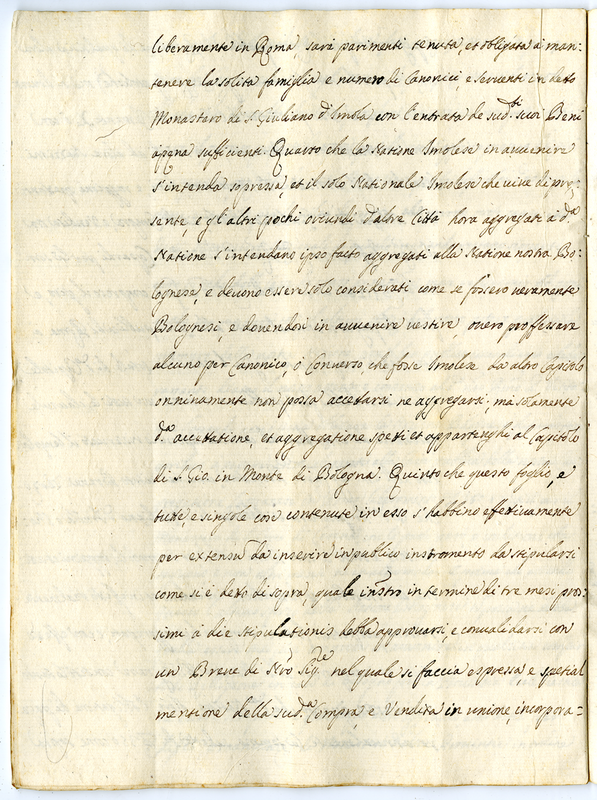 liberamente in Roma, sarà parimenti tenuta, et obligata à man:
tenere la solita famiglia e numero di Canonici, e serventi in detto
Monastero di S. Giuliano d'Imola con l'entrata de sud.ti suoi Beni
àpena sufficienti. Quarto che la Natione Imolese in auuenire
s'intenda sopressa, et il solo Nationale Imolese che uiue di pre:
sente, e gl'altri pochi oriundi d'altre Città hora aggregati à d.a
Natione s'intendano ipso facto aggregati alla Natione nostra Bo:
lognese, e deuono essere solo considerati come se fossero ueramente
Bolognesi, e douendosi in auuenire uestire, ouero proffessare
alcuno per Canonico, ò Conuerso che fosse Imolese da altro Capitolo
onninamente non possa accettarsi ne aggregarsi; mà solamente
d.a accettatione, et aggregatione spetti et appartenghi al Capitolo
di S. Gio. in Monte di Bologna. Quinto che questo foglio, e
tutte, e singole cose contenute in esso s'habbino effettiuamente
per extensũ da inserire in publico instromento da stipularsi
come si è detto di sopra, quale instro in termine di tre mesi pros:
simi à die stipulationis debba approuarsi, e conualidarsi con
un Breue di Nro Sig.re nel quale si faccia espressa, e spetial
mentione della sud.a Compra, e Vendita in unione, incorpora=